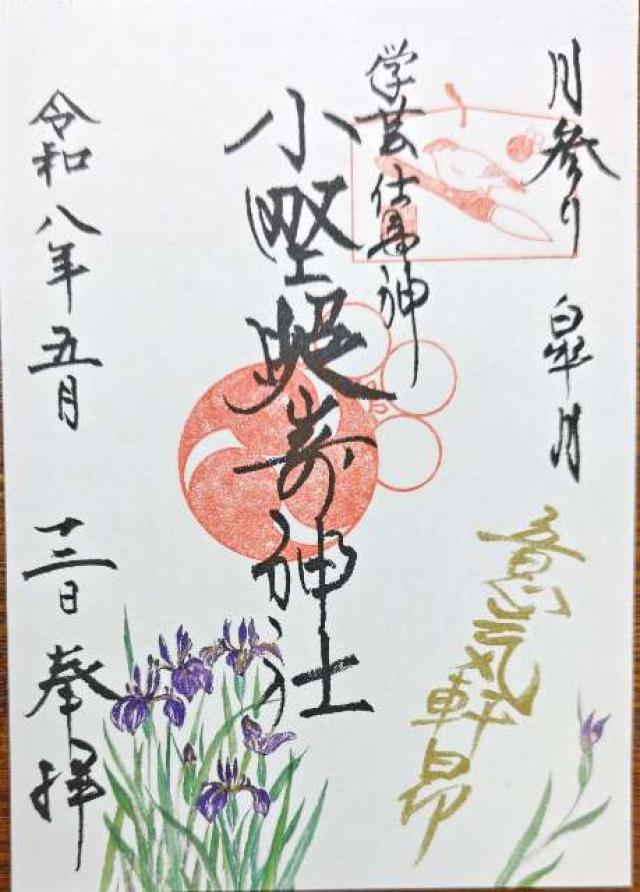 月参り 皐月
意気軒昂
学芸仕事神
小野照崎神社
令和八年五月 十二日 奉拝